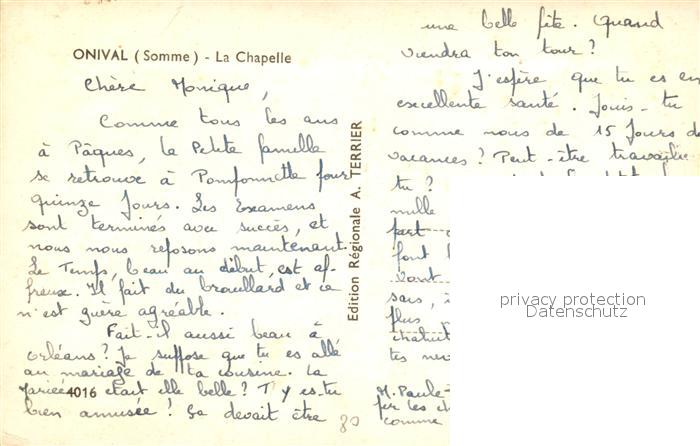 ONIVAL (Somme) - La Chapelle
Chère Monique,
Comme tous les ans
à Pâques, la Petite famille
se retrouve à Pomponnette pour
quinze jours. Les Examens
sont terminés avec succès, et
nous nous reposons maintenant.
Le Temps, beau au début, est af-
freux. Il fait du brouillard et ce
n'est guère agréable.
Fait-il aussi beau à
Orléans? Je suppose que tu es allé
au mariage de ta cousine. La
mariée était elle belle? T'y es-tu
bien amusée! Ca devait être
4016
80
Edition Régionale A. TERRIER
une belle fête. Quand
viendra ton tour?
J'espère que tu es en
excellente santé. Jouis-tu
comme nous de 15 Jours de
vacances? Peut-être travailles-
tu?
mille
part
font
vont
sans,
plus
chahut
tes nev
M. Paule-
par les ch
comme
privacy protection
Datenschutz